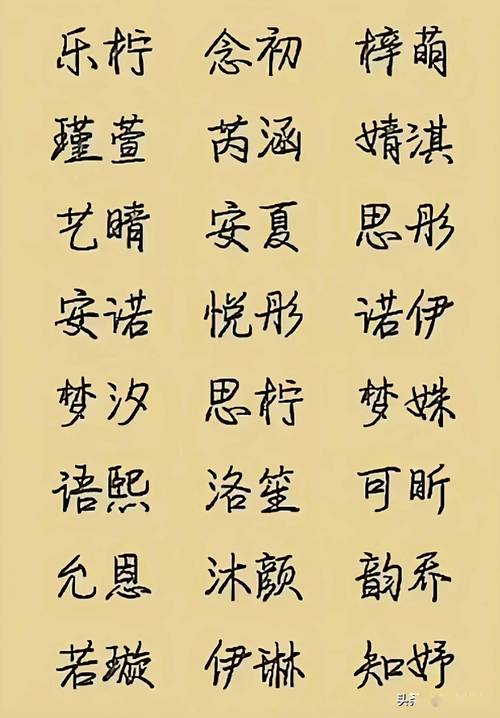 乐柠 念初 梓萌
瑾萱 芮涵 婧淇
艺晴 安夏 思彤
安诺 悦彤 诺伊
梦汐 思柠 梦姝
语熙 洛笙 可昕
允恩 沐颜 韵乔
若璇 伊琳 知妤
头条